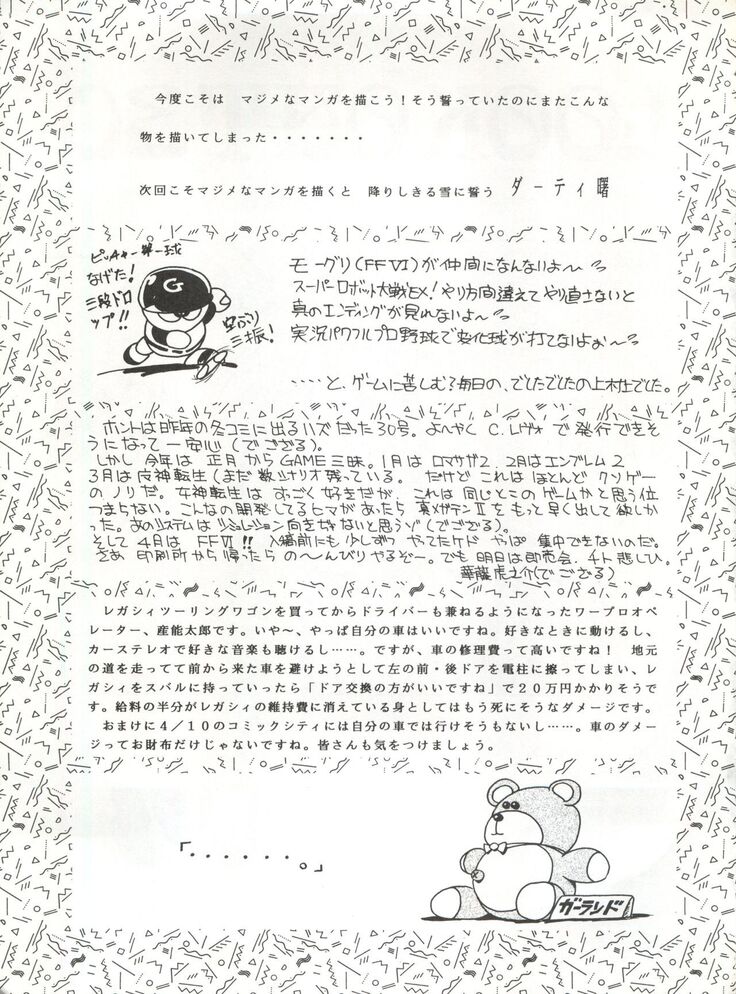 今度こそは マジメなマンガを描こう！そう誓っていたのにまたこんな
物を描いてしまった・・・・・・・
次回こそマジメなマンガを描くと 降りしきる雪に誓う ダーティ曙
ピッチャー第一球
なげた！
三段ドロ
ップ!!
G
空ぶり
三振！
モーグリ(FFⅥ)が仲間になんないよ〜
スーパーロボット大戦EX！やり方間違えてやり直さないと
真のエンディングが見れないよ〜
実況パワフルプロ野球で変化球が打てないよぉ〜
‥‥と、ゲームに苦しむ毎日の、でしたでしたの上村でした。
ホントは昨年の冬コミに出るハズだった30号。よーやく C.レヴォ で発行できそ
うになって一安心(でござる)。
しかし 今年は 正月からGAME三昧。1月は ロマサガ2、2月はエンブレム2
3月は女神転生(まだ数シナリオ残っている。 だけど これはほとんど クソゲー
のノリだ。女神転生は すっごく好きだが、これは同じとこのゲームかと思う位
つまらない。こんなの開発してるヒマがあったら 真メガテンⅡ をもっと早く出して欲しか
った。あのシステムは シミュレーション向きぢゃないと思うゾ(でござる)。
そして 4月は FFⅥ!! 入稿前にも少しずつ やってたケド やっぱ 集中できないのだ。
さあ 印刷所から帰ったら の〜んびりやるぞー。でも明日は即売会、チト悲しひ。
華龍虎之介(でござる)
レガシィツーリングワゴンを買ってからドライバーも兼ねるようになったワープロオペ
レーター、産能太郎です。いや〜、やっぱ自分の車はいいですね。好きなときに動けるし、
カーステレオで好きな音楽も聴けるし……。ですが、車の修理費って高いですね！ 地元
の道を走ってて前から来た車を避けようとして左の前・後ドアを電柱に擦ってしまい、レ
ガシィをスバルに持っていったら「ドア交換の方がいいですね」で２０万円かかりそうで
す。給料の半分がレガシィの維持費に消えている身としてはもう死にそうなダメージです。
おまけに４／１０のコミックシティには自分の車では行けそうもないし……。車のダメー
ジってお財布だけじゃないですね。皆さんも気をつけましょう。
「・・・・・・。」
ガーランド